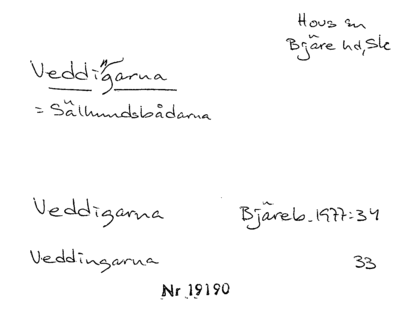 Hovs sn
Bjäre hd, Sk
Veddi(n)garna
= Sälhundsbådarna
Veddigarna Bjäreb. 1977:34
Veddingarna 33
Nr 19190